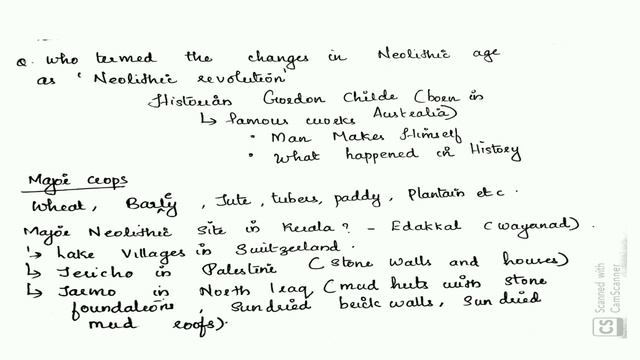 Q. Who termed the changes in Neolithic age
as 'Neolithic revolution'
Historian Gordon Childe (born in
↳ famous works Australia)
• Man Makes Himself
• What happened in History
Major crops
Wheat, Barley, Jute, tubers, paddy, Plantain etc.
Major Neolithic Site in Kerala? - Edakkal (Wayanad).
↳ Lake Villages in Switzerland.
↳ Jericho in Palestine (Stone walls and houses)
↳ Jarmo in North Iraq (mud huts with stone
foundations, Sundried brick walls, Sun dried
mud roofs).
CS Scanned with
CamScanner